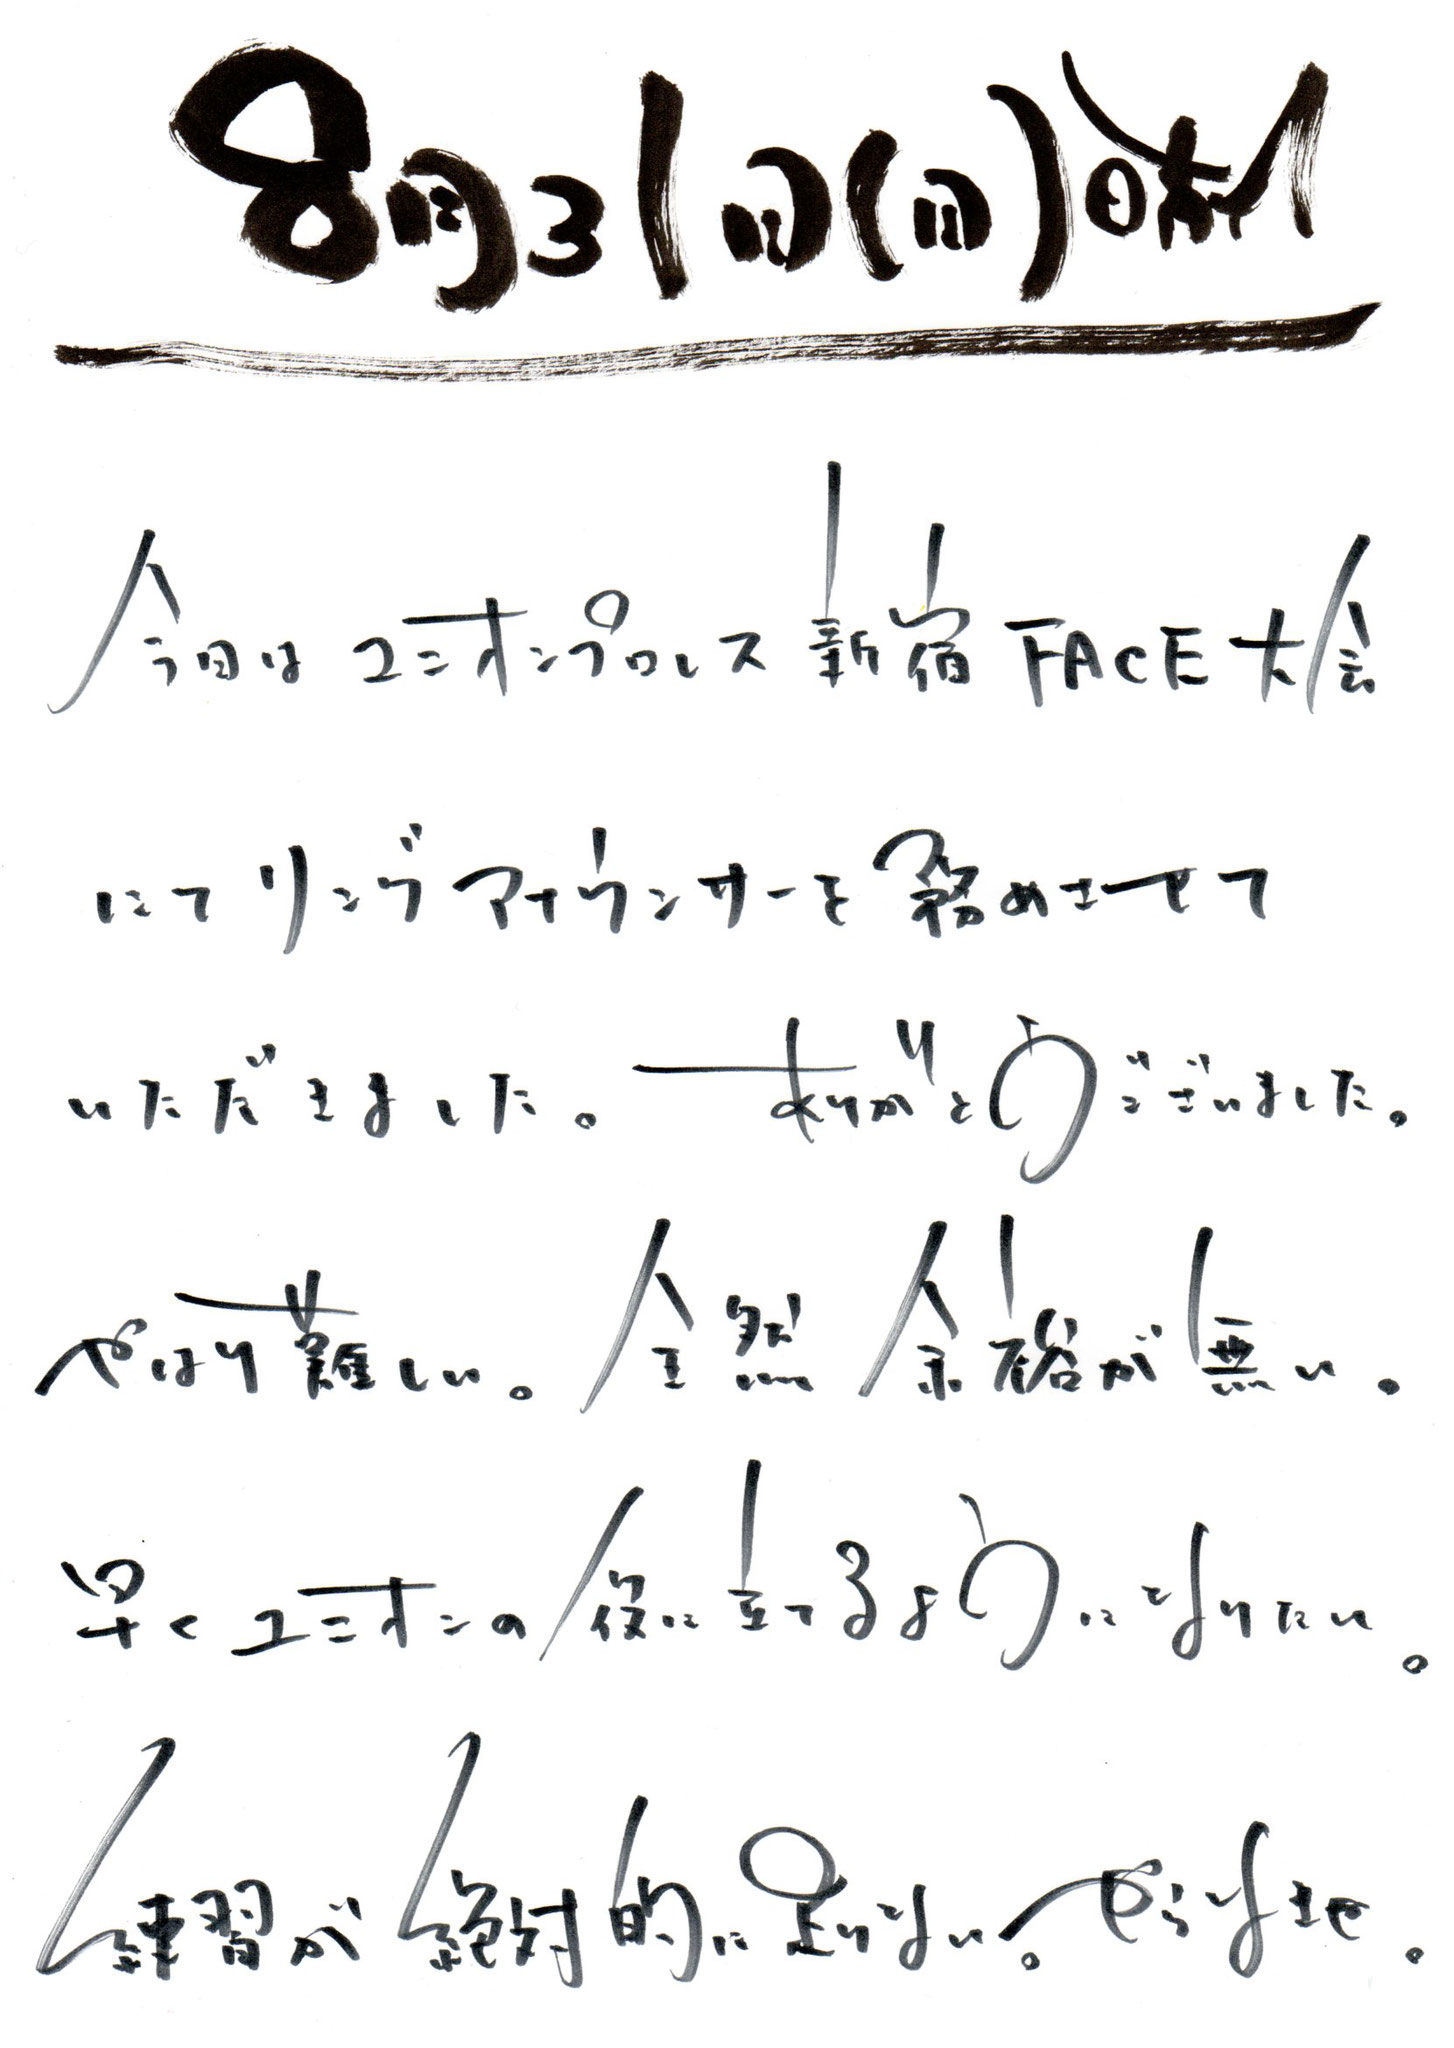 8月31日(日)晴れ
今日はユニオンプロレス新宿FACE大会
にてリングアナウンサーを務めさせて
いただきました。ありがとうございました。
やはり難しい。全然余裕が無い。
早くユニオンの役に立てるようになりたい。
練習が絶対的に足りない。やらなきゃ。